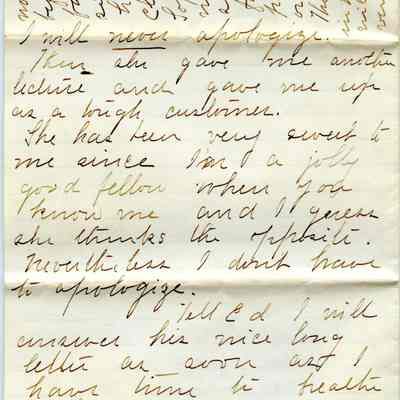 I will never apologize.
Then she gave me another
lecture and gave me up
as a tough customer.
She has been very sweet to
me since I'm a jolly
good fellow when you
know me and I guess
she thinks the opposite.
Nevertheless I don't have
to apologize.
Tell Ed I will
answer his nice long
letter as soon as I
have time to breathe